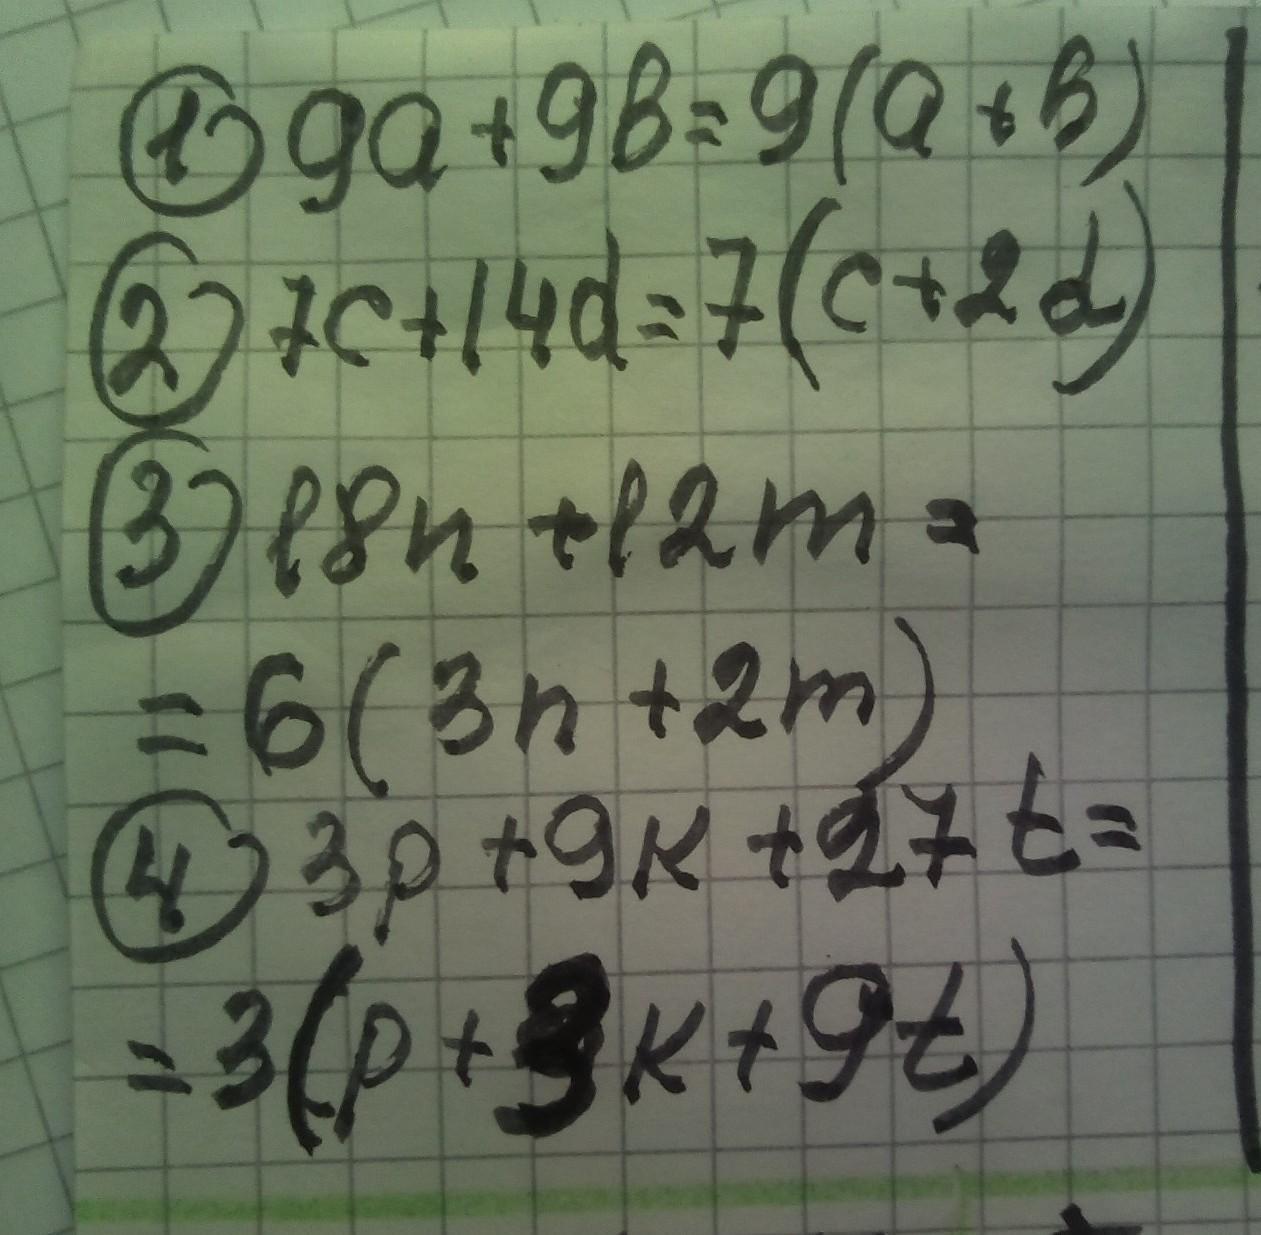 ① 9a+9b=9(a+b)
② 7c+14d=7(c+2d)
③ 18n+12m=
=6(3n+2m)
④ 3p+9k+27t=
=3(p+3k+9t)